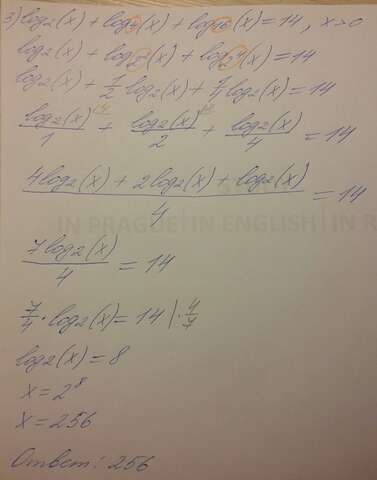 3) log₂(x) + log₄(x) + log₁₆(x) = 14, x>0
log₂(x) + log₂²(x) + log₂⁴(x) = 14
log₂(x) + 1/2 log₂(x) + 1/4 log₂(x) = 14
log₂(x)/1 + log₂(x)/2 + log₂(x)/4 = 14
(4log₂(x) + 2log₂(x) + log₂(x))/4 = 14
IN PRAGUE IN ENGLISH IN R
7log₂(x)/4 = 14
7/4 · log₂(x) = 14 | · 4/7
log₂(x) = 8
x = 2⁸
x = 256
Ответ: 256